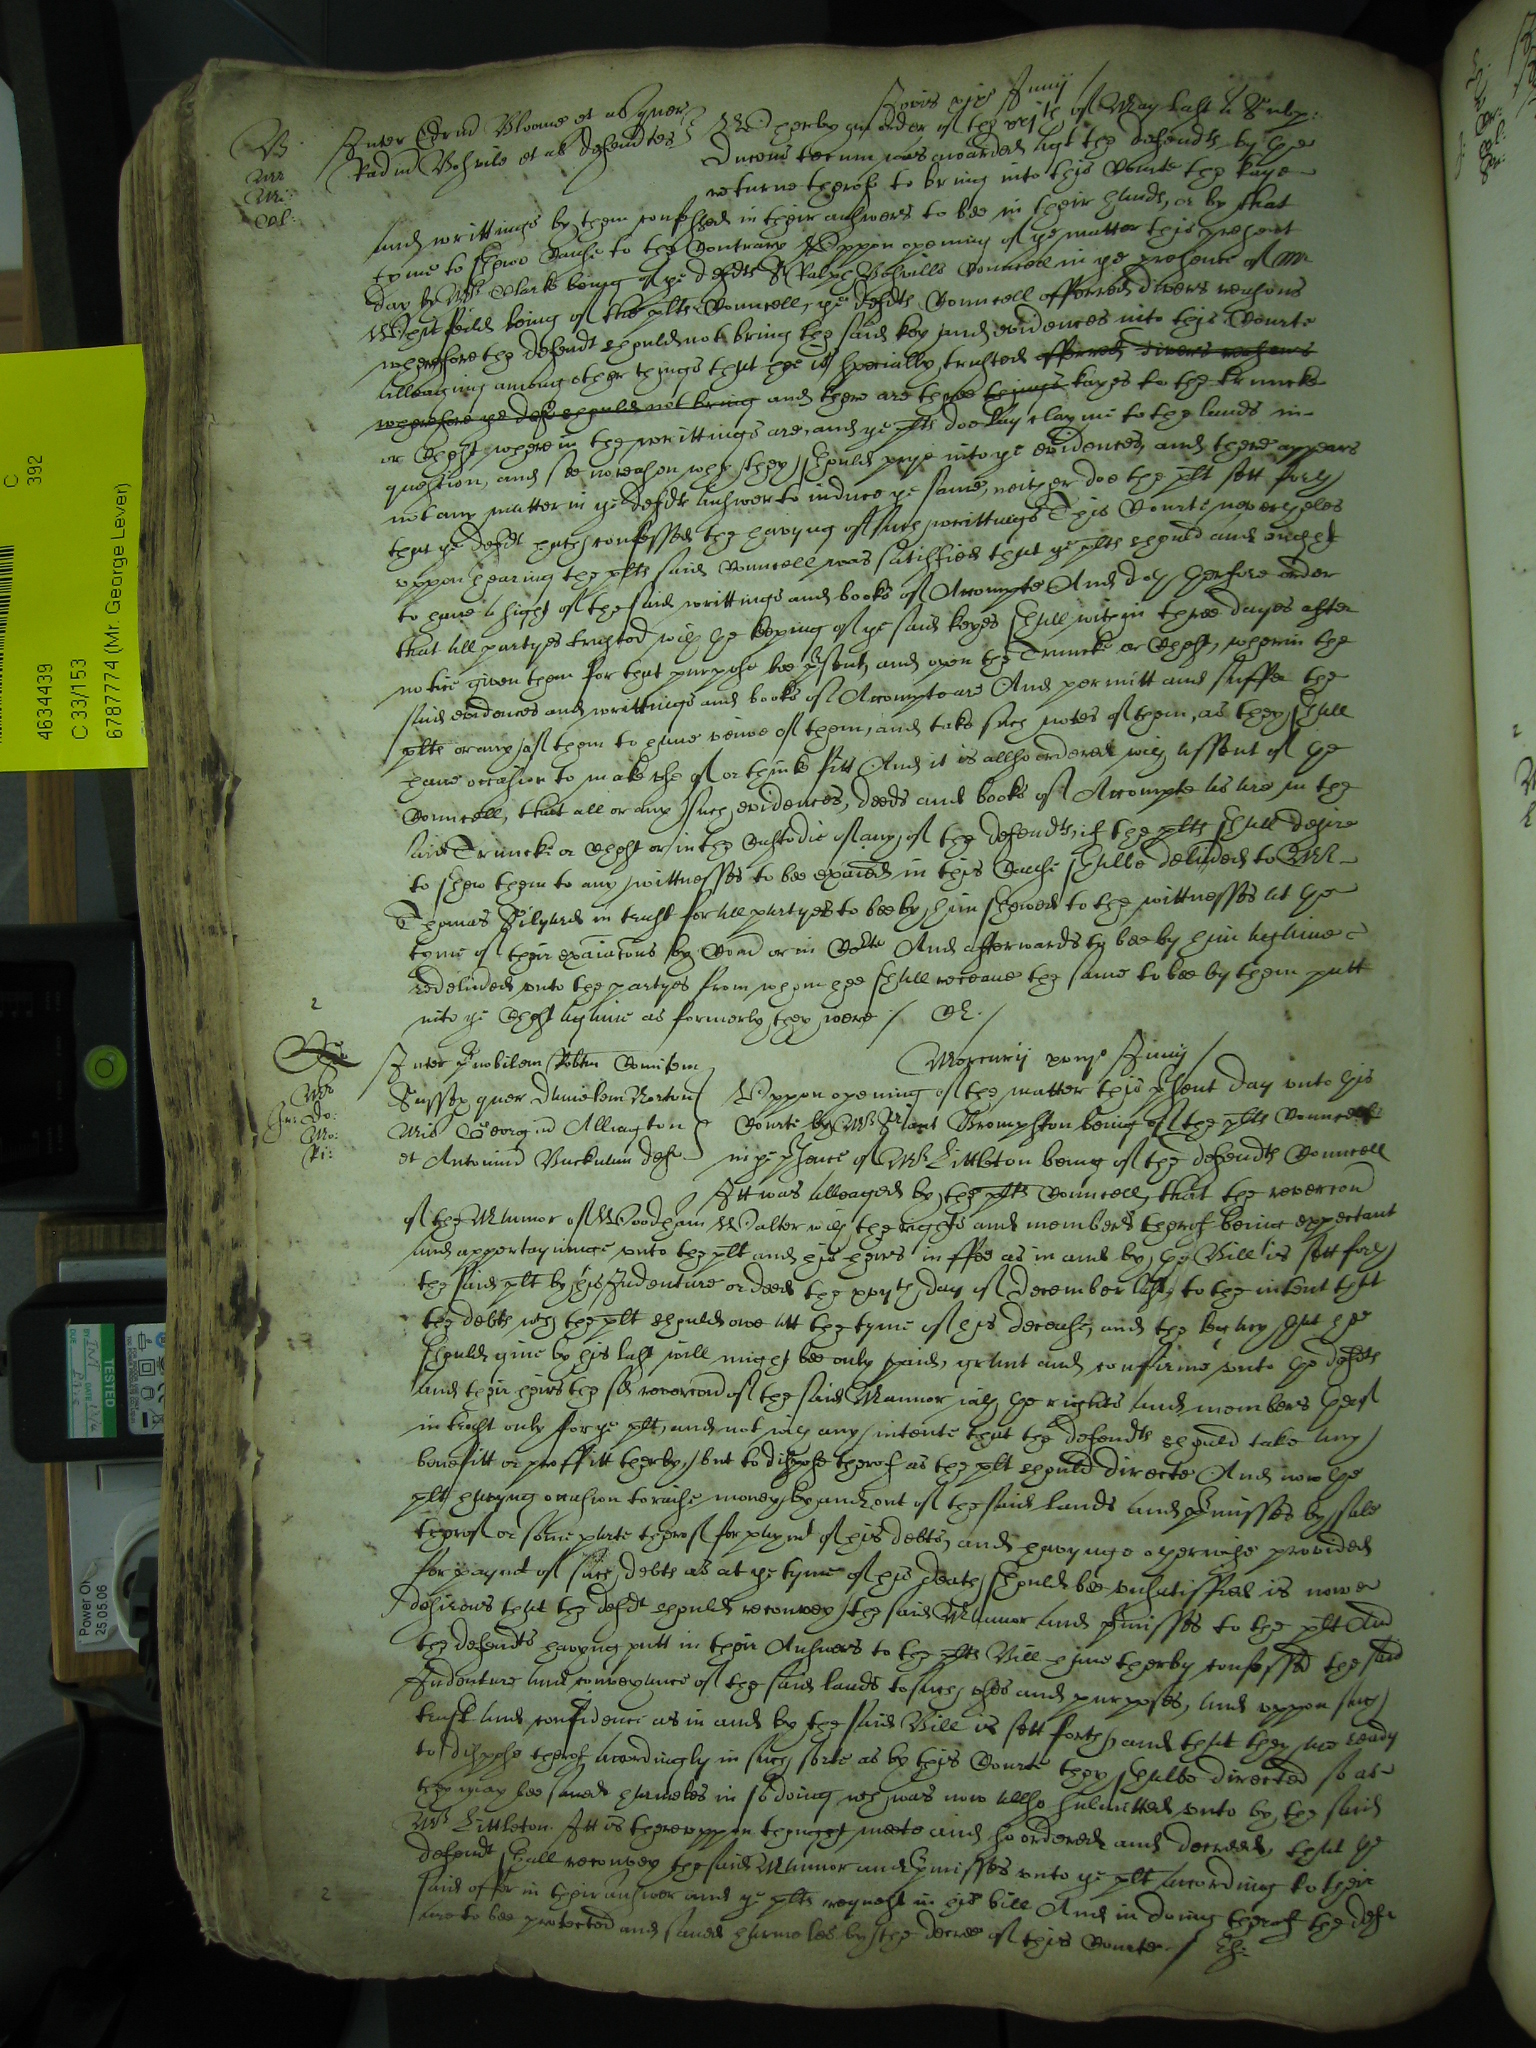 Jovis xix Junij /
B
Inter Edrud Bloome et al quer
Rad'm Bosvile et al defendtes
Whereby an order of the xvjth of May last a Subp:
Ducens tecum was awarded agt the defendts by the
returne therof to bring into this Courte the kaye
and writtings by them confessed in their answers to bee in their hands, or by that
tyme to shewe Cause to the Contrary Uppon opening of ye matter this present
day by Mr Clarke being of ye defdts Sr Ralph Bosvills Councell in ye presence of Mr
Whitfeild being of the plts Councell, ye defdts Councell offerred divers reasons
wherefore the defendt should not bring the said key and evidences into this Courte
alleaging among other things that hee is specially trusted offerred divers reasons
wherefore ye deft should not bring and there are three things kayes to the truncke
or Chest wherein the writtings are, and ye plts doe lay clayme to the lands in
question, and so no reason why they should prye into ye evidences, and there appears
not any matter in ye defdts answer to induce ye same, neither doe the plt sett forth
that ye defdt hath confessed the having of such writtings This Courte neverthelesse
uppon hearing the plts said Councell was satisfied that ye plts should and ought
to have a sight of the said writtings and books of Accompte And doth therfore order
that all partyes trusted with the keeping of ye said keyes shall within three dayes after
notice given them for that purpose bee psent, and open the Truncke or Chest, wherein the
said evidences and writtings and books of Accompte are And permitt and suffer the
plts or any of them to have veiwe of them, and take such notes of them, as they shall
have occasion to make use of or thinke fitt And it is allso ordered with assent of the
Councell, that all or any such evidences, deeds and books of Accompte as are in the
said Truncke or Chest or in the Custodie of any of the defendts, if the plts shall desire
to shew them to any wittnesses to bee exaied in this Cause shalbe delived to Mr
Thomas Hilyard in trust for all partyes to bee by him shewed to the wittnesses at the
tyme of their exaiacons by Com or in Corte And afterwards to bee by him againe
redelived unto the partyes from whom hee shall receave the same to bee by them putt
into ye Chest againe as formerly they were /
2
Mercurij xviijo Junij /
Inter Prnobilem Robtm Comitem
Sussex quer Danielem Norton
Mil Georgiu Allington
et Antoniu Buckulam def
Uppon opening of the matter this psent day unto this
Courte by Mr Brompton being of the plts Councell
in ye psence of Mr Littleton being of the defendts Councell
Itt was alleaged by the plts Councell, that the revercon
of the Mannor of Woodham Walter with the rights and members therof being expectant
and appertayninge unto the plt and his heirs in ffee as in and by the Bill is sett forth
the said plt by his Indenture or deed the day of December last, to the intent that
the debts wch the plt should owe att the tyme of his decease, and the legacy that he
should give by his last will might bee only paid, grant and confirme unto the defdts
and their heirs the sd revercon of the said Mannor with the rights and members therof
in trust only for ye plt, and not with any intente that the defendts should take any
benefitt or proffitt therby, but to dispose therof as the plt should directe And now the
plt having occasion to raise money by and out of the said lands and pmisses by sale
therof or some parte therof for paymt of his debts, and havynge otherwise provided
for paymt of such debts as at ye tyme of his death should bee unsatisfied is nowe
desirous that the defdt should reconvey the said Mannor and pmisses to the plt And
the defendts having putt in their Answers to the plts Bill have therby confessed the said
Indenture and conveyance of the said lands to such uses and purposes, and uppon such
trust and confidence as in and by the said Bill is sett forth, and that they are ready
to dispose therof accordingly in such sorte as by this Courte they shalbe directed so as
they may bee saved harmeles in so doing wch was now allso submitted unto by the said
Mr Littleton. Itt is thereuppon thought meete and so ordered and decreed, that the
defendt shall reconvey the said Mannor and pmisses unto ye plt according to their
said offer in their answer and ye plts request in his bill And in doing therof the defts
are to bee protected and saved harmeles by the decree of this Courte /
2
4634439
C
392
C 33/153
67877774 (Mr. George Lever)
TESTED
Power On
25 05 06